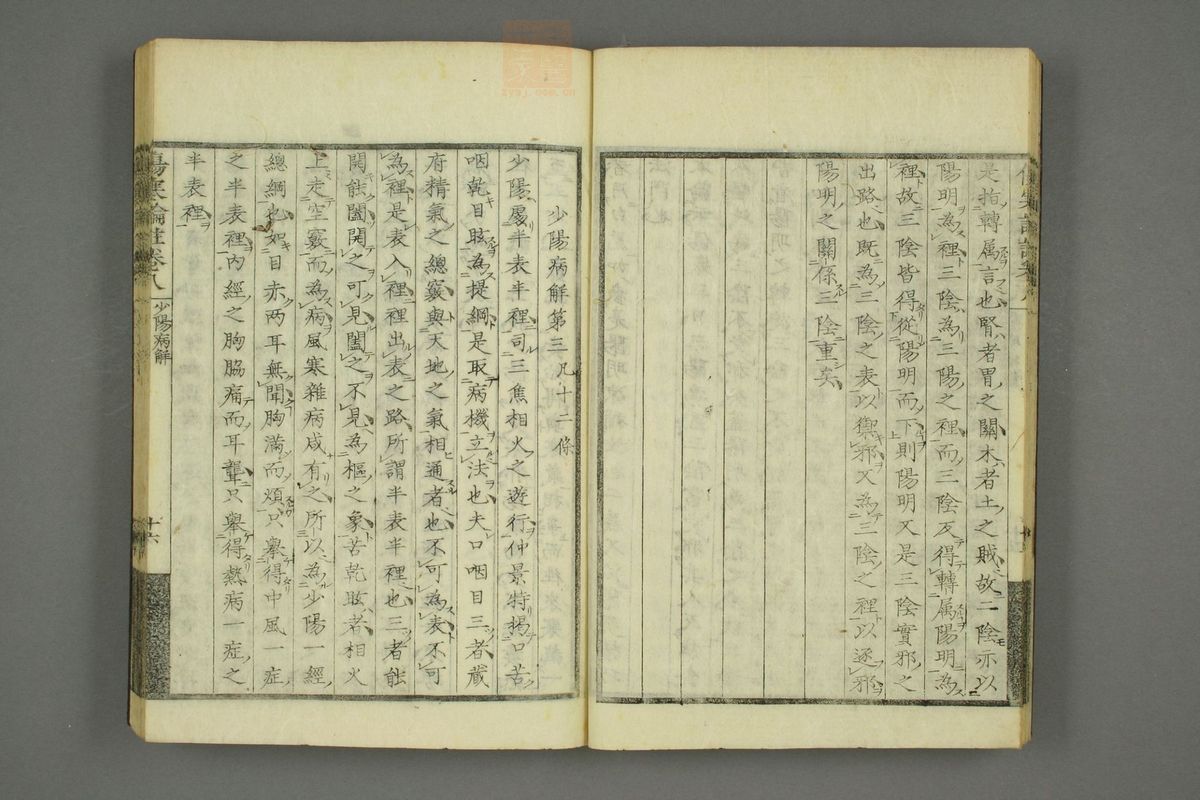 是指轉属言也腎者胃之關木者土之賊故二陰亦以
陽明為裡三陰為三陽之裡而三陰反得轉属陽明為
裡故三陰皆得從陽明而下則陽明又是三陰實邪之
出路也既為三陰之表以禦邪又為三陰之裡以逐邪
陽明之關係三陰重矣
少陽病解第三凡十二條
少陽處半表半裡司三焦相火之遊行仲景特揭口苦
咽乾目眩為提綱是取病機立法也夫口咽目三者藏
府精氣之總竅與天地之氣相通者也不可為表不可
為裡是表入裡裡出表之路所謂半表半裡也三者能
開能闔開之可見闔之不見為樞之象苦乾眩者相火
上走空竅而為病風寒雜病咸有之所以為少陽一經
總綱也如目赤两耳無聞胸滿而煩只舉得中風一症
之半表裡内經之胸脇痛而耳聾只舉得熱病一症之
半表裡
傷寒論註卷八
少陽病解
十六